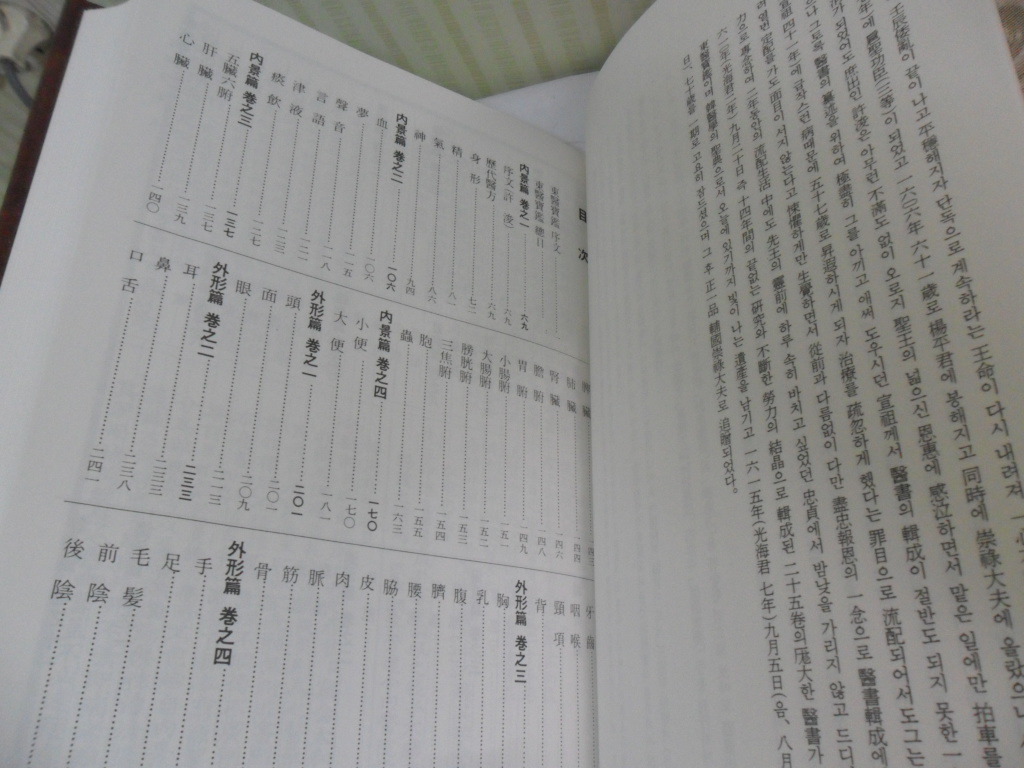 壬辰倭亂이 끝이 나고 平穩해지자 단독으로 계속하라는 王命이 다시 내려져
年에 扈聖功臣三等이 되었고 一六〇六年 六十一歲로 楊平君에 봉해지고 同時에 崇祿大夫에 올랐으나
가 있었어도 虛心인 許浚은 아무런 不滿도 없이 오로지 聖王의 넓으신 恩惠에 感泣하면서 맡은 일에만 拍車를
으나 그토록 醫書의 蒐集을 위하여 極盡히 그를 아끼고 애써 도우시던 宣祖께서 醫書의 輯成이 절반도 되지 못한
位 四十一年에 갑작스런 病때문에 五十七歲로 昇遐하시게 되자 治療를 疏忽하게 했다는 罪目으로 流配되어서도 그는
려였던 流配를 가 面目이 서지 않는다고 悽慘하게만 生覺하면서 從前과 다름없이 다만 盡忠報恩의 一念으로 醫書輯成에
力으로 專念하여 二年동안의 流配生活 中에도 先王의 靈前에 하루 속히 바치고 싶었던 忠貞에서 밤낮을 가리지 않고 드디
六一〇年(光海君二年) 九月二十日 라 十四年間의 끝없는 研究와 不斷한 勞力의 結晶으로 輯成된 二十五卷의 厖大한 醫書가
東醫寶鑑이며 韓醫學의 聖典으로서 오늘에 이르기까지 빛이 나는 遺産을 남기고 一六一五年(光海君 七年) 九月五日(음、八月
日) 七十歲를 期로 고이 잠드셨으며 그 후 正一品 輔國崇祿大夫로 追贈되었다。
目次
東醫寶鑑 序文
東醫寶鑑 總目
內景篇 卷之一 六九
序文(許 浚) 六九
歷代醫方 六九
身形 七二
精 八二
氣 八六
神 九四
內景篇 卷之二 一〇六
血 一〇六
夢 一一五
聲音 一一八
言語
津液 一二三
痰飮 一二七
內景篇 卷之三 一三七
五臟六腑 一三七
肝臟 一三九
心臟 一四〇
脾臟
肺臟 一四四
腎臟 一四六
膽腑 一四八
胃腑 一四九
小腸腑 一五二
大腸腑 一五三
膀胱腑 一五四
三焦腑 一五五
胞 一五五
蟲 一六三
內景篇 卷之四 一七〇
小便 一七〇
大便 一八一
外形篇 卷之一 二〇一
頭 二〇一
面 二〇九
眼 二一三
外形篇 卷之二 二三三
耳 二三三
鼻 二三八
口舌 二四一
牙齒
咽喉
頸項
背
外形篇 卷之三
胸
乳
腹
臍
腰
脇
皮
肉
脈
筋
骨
外形篇 卷之四
手
足
毛髮
前陰
後陰